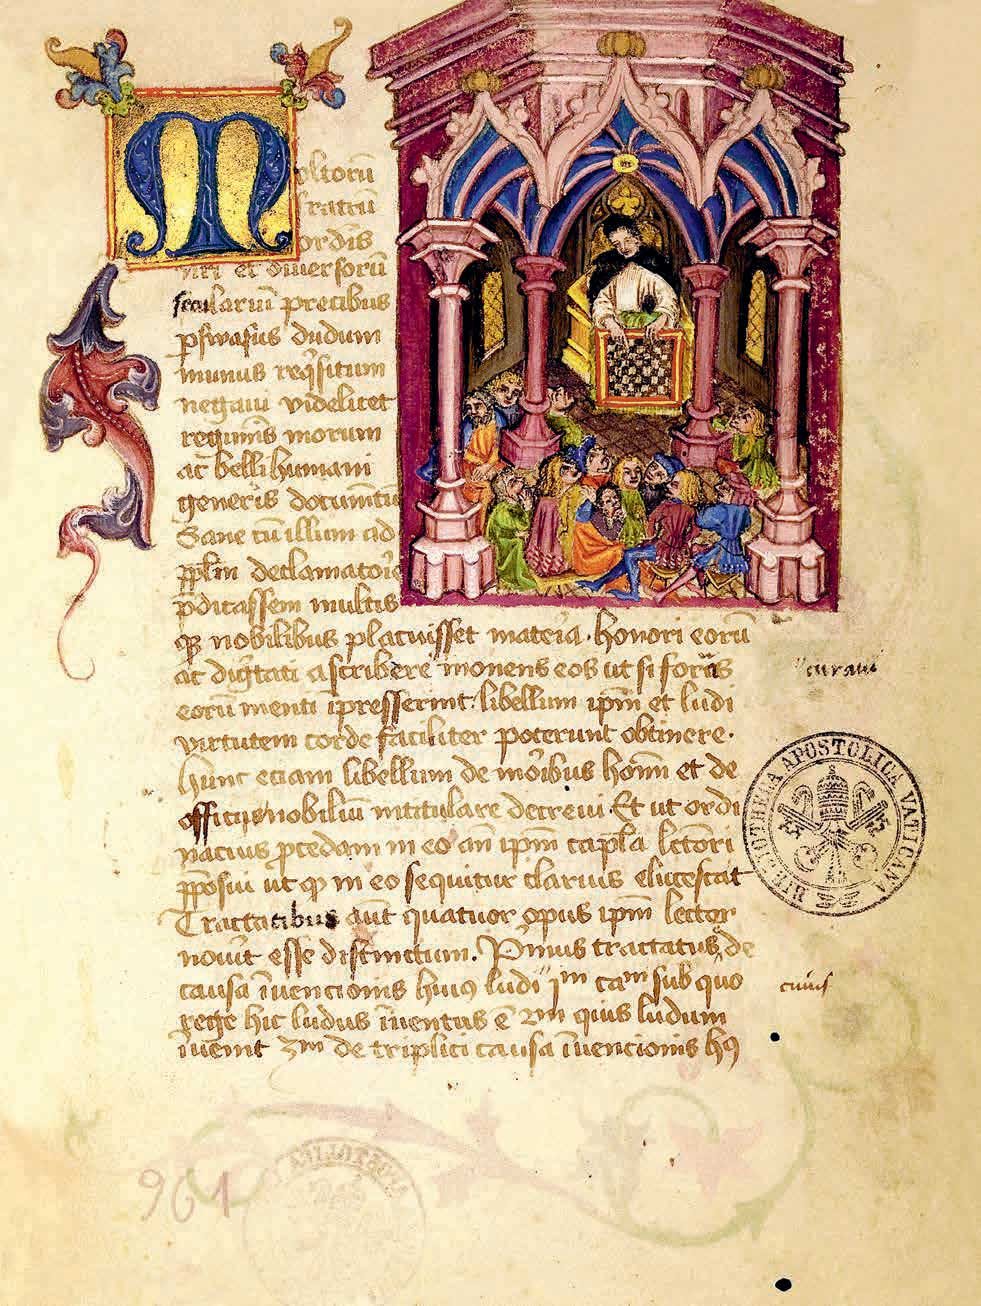 Moltorū
fratrū
ordīs
nr̄i et diuersorū
seculariū precibus
ꝑswasus dudum
munus reqͥsitum
negaui videlicet
regimīs morum
ac belli humani
generis documētū
Sane cū illum ad
ppl̄m declamatoīe
pditassem multis
qꝫ nobilibus placuisset mateīa. honori eorū
ac dig̅tati ascribere monens eos ut si formas
eorū menti īpresserint: libellum ip̄m et ludi
virtutem corde faciliter poterunt obtinere.
curaui
Hunc etiam libellum de mōibus hom̄ et de
officijs nobiliū intitulare decreui. Et ut ordi
nacius ꝓcedam in eo an̄ ip̄m capl̄a lectori
ꝓposui ut qd̄ in eo sequitur clarius elucescat
Tractatibus aūt quatuor opus ip̄m lector
nouit esse distinctum. Pͥmus tractatus de
causa īuencionis huiꝰ ludi jm cam sub quo
cuius
rege hic ludus īuentus ē 2m quis ludum
īuenit 3m de triplici causa īuencionis hꝰ
BIBLIOTHECA APOSTOLICA VATICANA
961